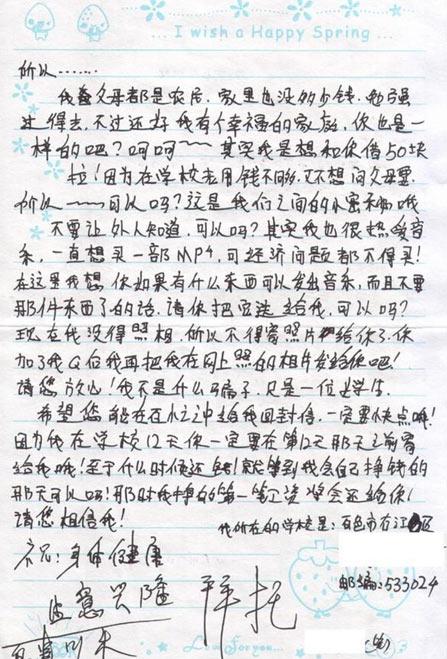 ... I wish a Happy Spring ...
所以……
我父母都是农民,家里也没多少钱,勉强
过得去,不过还好我有个幸福的家庭,你也是一
样的吧?呵呵~~其实我是想和你借50块
啦!因为在学校支用钱不够,又不想问父母要.
所以~~可以吗?这是我们之间的小秘密哦
不要让外人知道,可以吗?其实我也很热爱音
乐,一直想买一部MP4,可经济问题都不得买!
在这里我想,你如果有什么东西可以发出音乐,而且不要
那件东西了的话,请你把它送给我,可以吗?
现在我没得照相,所以不得寄照片给你了,你
加了我Q位我再把我在网上照的相片发给你吧!
请您放心!我不是什么骗子,只是一位学生.
希望您能在百忙之中给我回封信,一定要快点哦!
因为我在学校12天你一定要在第12天那天之前寄
给我哦!至于什么时侯还钱!就等到我会自己挣钱的
那天可以吗!那时我挣的第一笔工资将会还给你!
请您相信我!
我所在的学校是:百色市右江区
祝:身体健康
生意兴隆
拜托
邮编:533024
Love for you...